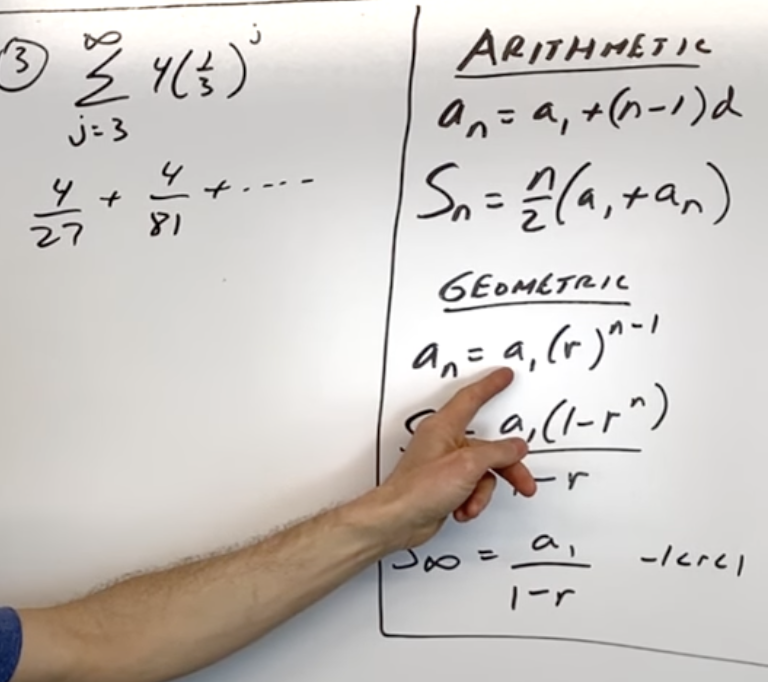 ③ ∞
Σ 4(1/3)^j
j=3
4/27 + 4/81 + ....
ARITHMETIC
a_n = a_1 + (n-1)d
S_n = n/2(a_1 + a_n)
GEOMETRIC
a_n = a_1(r)^(n-1)
= a_1(1-r^n)
-r
S_∞ = a_1/(1-r) -1<r<1